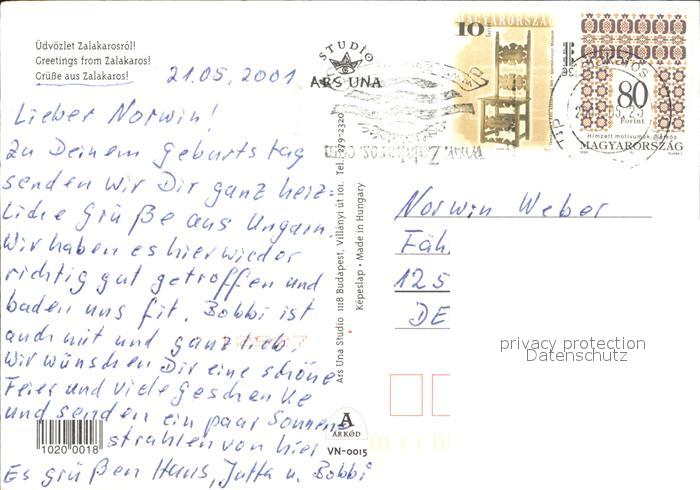 Üdvözlet Zalakarosról!
Greetings from Zalakaros!
Grüße aus Zalakaros!
21.05.2001
STUDIO
ARS UNA
10
MAGYARORSZÁG
80
Forint
Hímzett motívumok
MAGYARORSZÁG
www.Zalakaros.com
Lieber Norwin!
Zu Deinem Geburtstag
senden wir Dir ganz herz-
liche Grüße aus Ungarn.
Wir haben es hier wieder
richtig gut getroffen und
baden uns fit. Bobbi ist
auch mit und ganz lieb.
Wir wünschen Dir eine schöne
Feier und viele Geschenke
und senden ein paar Sonnen
strahlen von hier
Es grüßen Hans, Jutta u. Bobbi
Ars Una Studio 1118 Budapest, Villányi út 101. Tel.: 279-2320
Képeslap • Made in Hungary
Norwin Weber
Fäh
125
DE
privacy protection
Datenschutz
1020 0018
A
ÁRKÓD
VN-0015